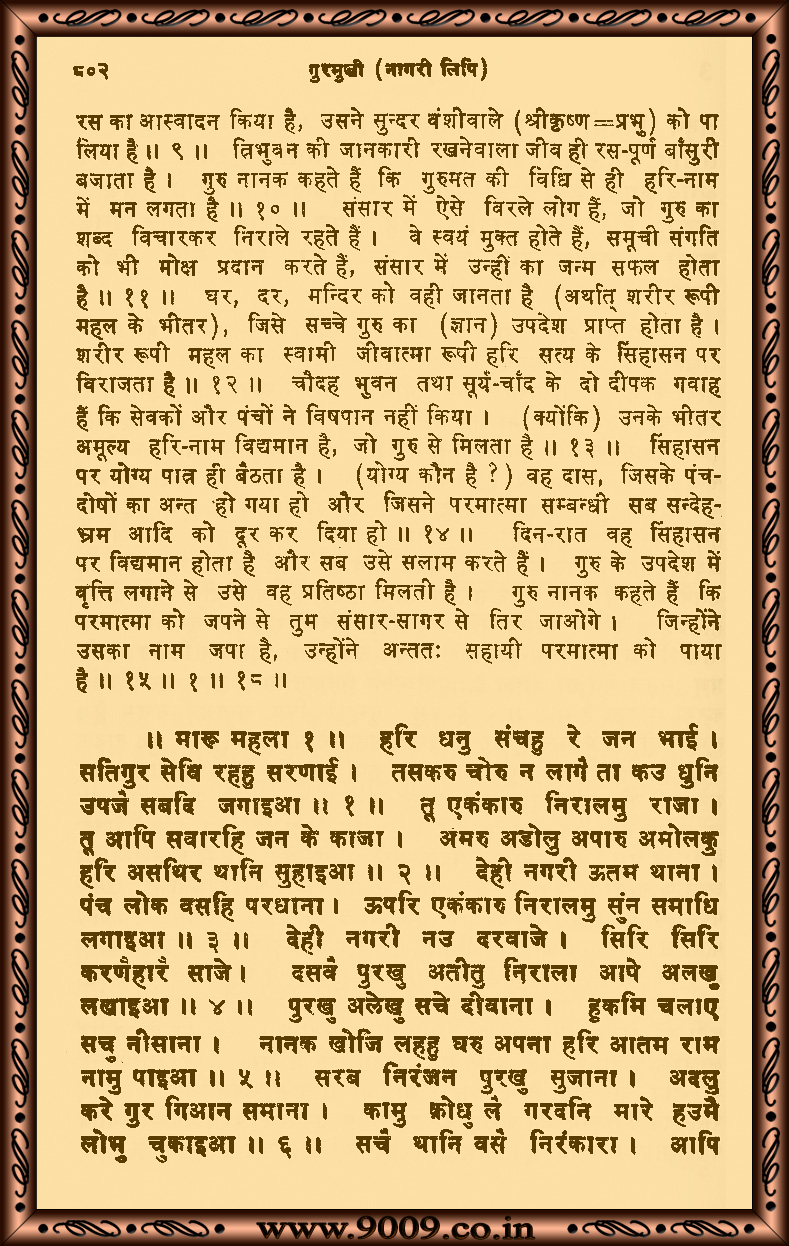 ८०२ गुरमुखी (नागरी लिपि)
रस का आस्वादन किया है, उसने सुन्दर वंशीवाले (श्रीकृष्ण=प्रभु) को पा
लिया है॥ ९ ॥ त्रिभुवन की जानकारी रखनेवाला जीव ही रस-पूर्ण बाँसुरी
बजाता है। गुरु नानक कहते हैं कि गुरुमत की विधि से ही हरि-नाम
में मन लगता है॥ १० ॥ संसार में ऐसे विरले लोग हैं, जो गुरु का
शब्द विचारकर निराले रहते हैं। वे स्वयं मुक्त होते हैं, समूची संगति
को भी मोक्ष प्रदान करते हैं, संसार में उन्हीं का जन्म सफल होता
है॥ ११ ॥ घर, दर, मन्दिर को वही जानता है (अर्थात् शरीर रूपी
महल के भीतर), जिसे सच्चे गुरु का (ज्ञान) उपदेश प्राप्त होता है।
शरीर रूपी महल का स्वामी जीवात्मा रूपी हरि सत्य के सिंहासन पर
विराजता है॥ १२ ॥ चौदह भुवन तथा सूर्य-चाँद के दो दीपक गवाह
हैं कि सेवकों और पंचों ने विषपान नहीं किया। (क्योंकि) उनके भीतर
अमूल्य हरि-नाम विद्यमान है, जो गुरु से मिलता है॥ १३ ॥ सिंहासन
पर योग्य पात्र ही बैठता है। (योग्य कौन है ?) वह दास, जिसके पंच-
दोषों का अन्त हो गया हो और जिसने परमात्मा सम्बन्धी सब सन्देह-
भ्रम आदि को दूर कर दिया हो॥ १४ ॥ दिन-रात वह सिंहासन
पर विद्यमान होता है और सब उसे सलाम करते हैं। गुरु के उपदेश में
वृत्ति लगाने से उसे वह प्रतिष्ठा मिलती है। गुरु नानक कहते हैं कि
परमात्मा को जपने से तुम संसार-सागर से तिर जाओगे। जिन्होंने
उसका नाम जपा है, उन्होंने अन्ततः सहायी परमात्मा को पाया
है॥ १५ ॥ १ ॥ १८ ॥
॥ मारू महला १ ॥ हरि धनु संचहु रे जन भाई।
सतिगुर सेवि रहहु सरणाई। तसकरु चोरु न लागै ता कउ धुनि
उपजै सबदि जगाइआ॥ १ ॥ तू एकंकारु निरालमु राजा।
तू आपि सवारहि जन के काजा। अमरु अडोलु अपारु अमोलकु
हरि असथिर थानि सुहाइआ॥ २ ॥ देही नगरी ऊतम थाना।
पंच लोक वसहि परधाना। ऊपरि एकंकारु निरालमु सुंन समाधि
लगाइआ॥ ३ ॥ देही नगरी नउ दरवाजे। सिरि सिरि
करणैहारै साजे। दसवै पुरखु अतीतु निराला आपे अलखु
लखाइआ॥ ४ ॥ पुरखु अलेखु सचे दीवाना। हुकमि चलाए
सचु नीसाना। नानक खोजि लहहु घरु अपना हरि आतम राम
नामु पाइआ॥ ५ ॥ सरब निरंजन पुरखु सुजाना। अदलु
करे गुर गिआन समाना। कामु क्रोधु लै गरदनि मारे हउमै
लोभु चुकाइआ॥ ६ ॥ सचै थानि वसै निरंकारा। आपि
www.9009.co.in